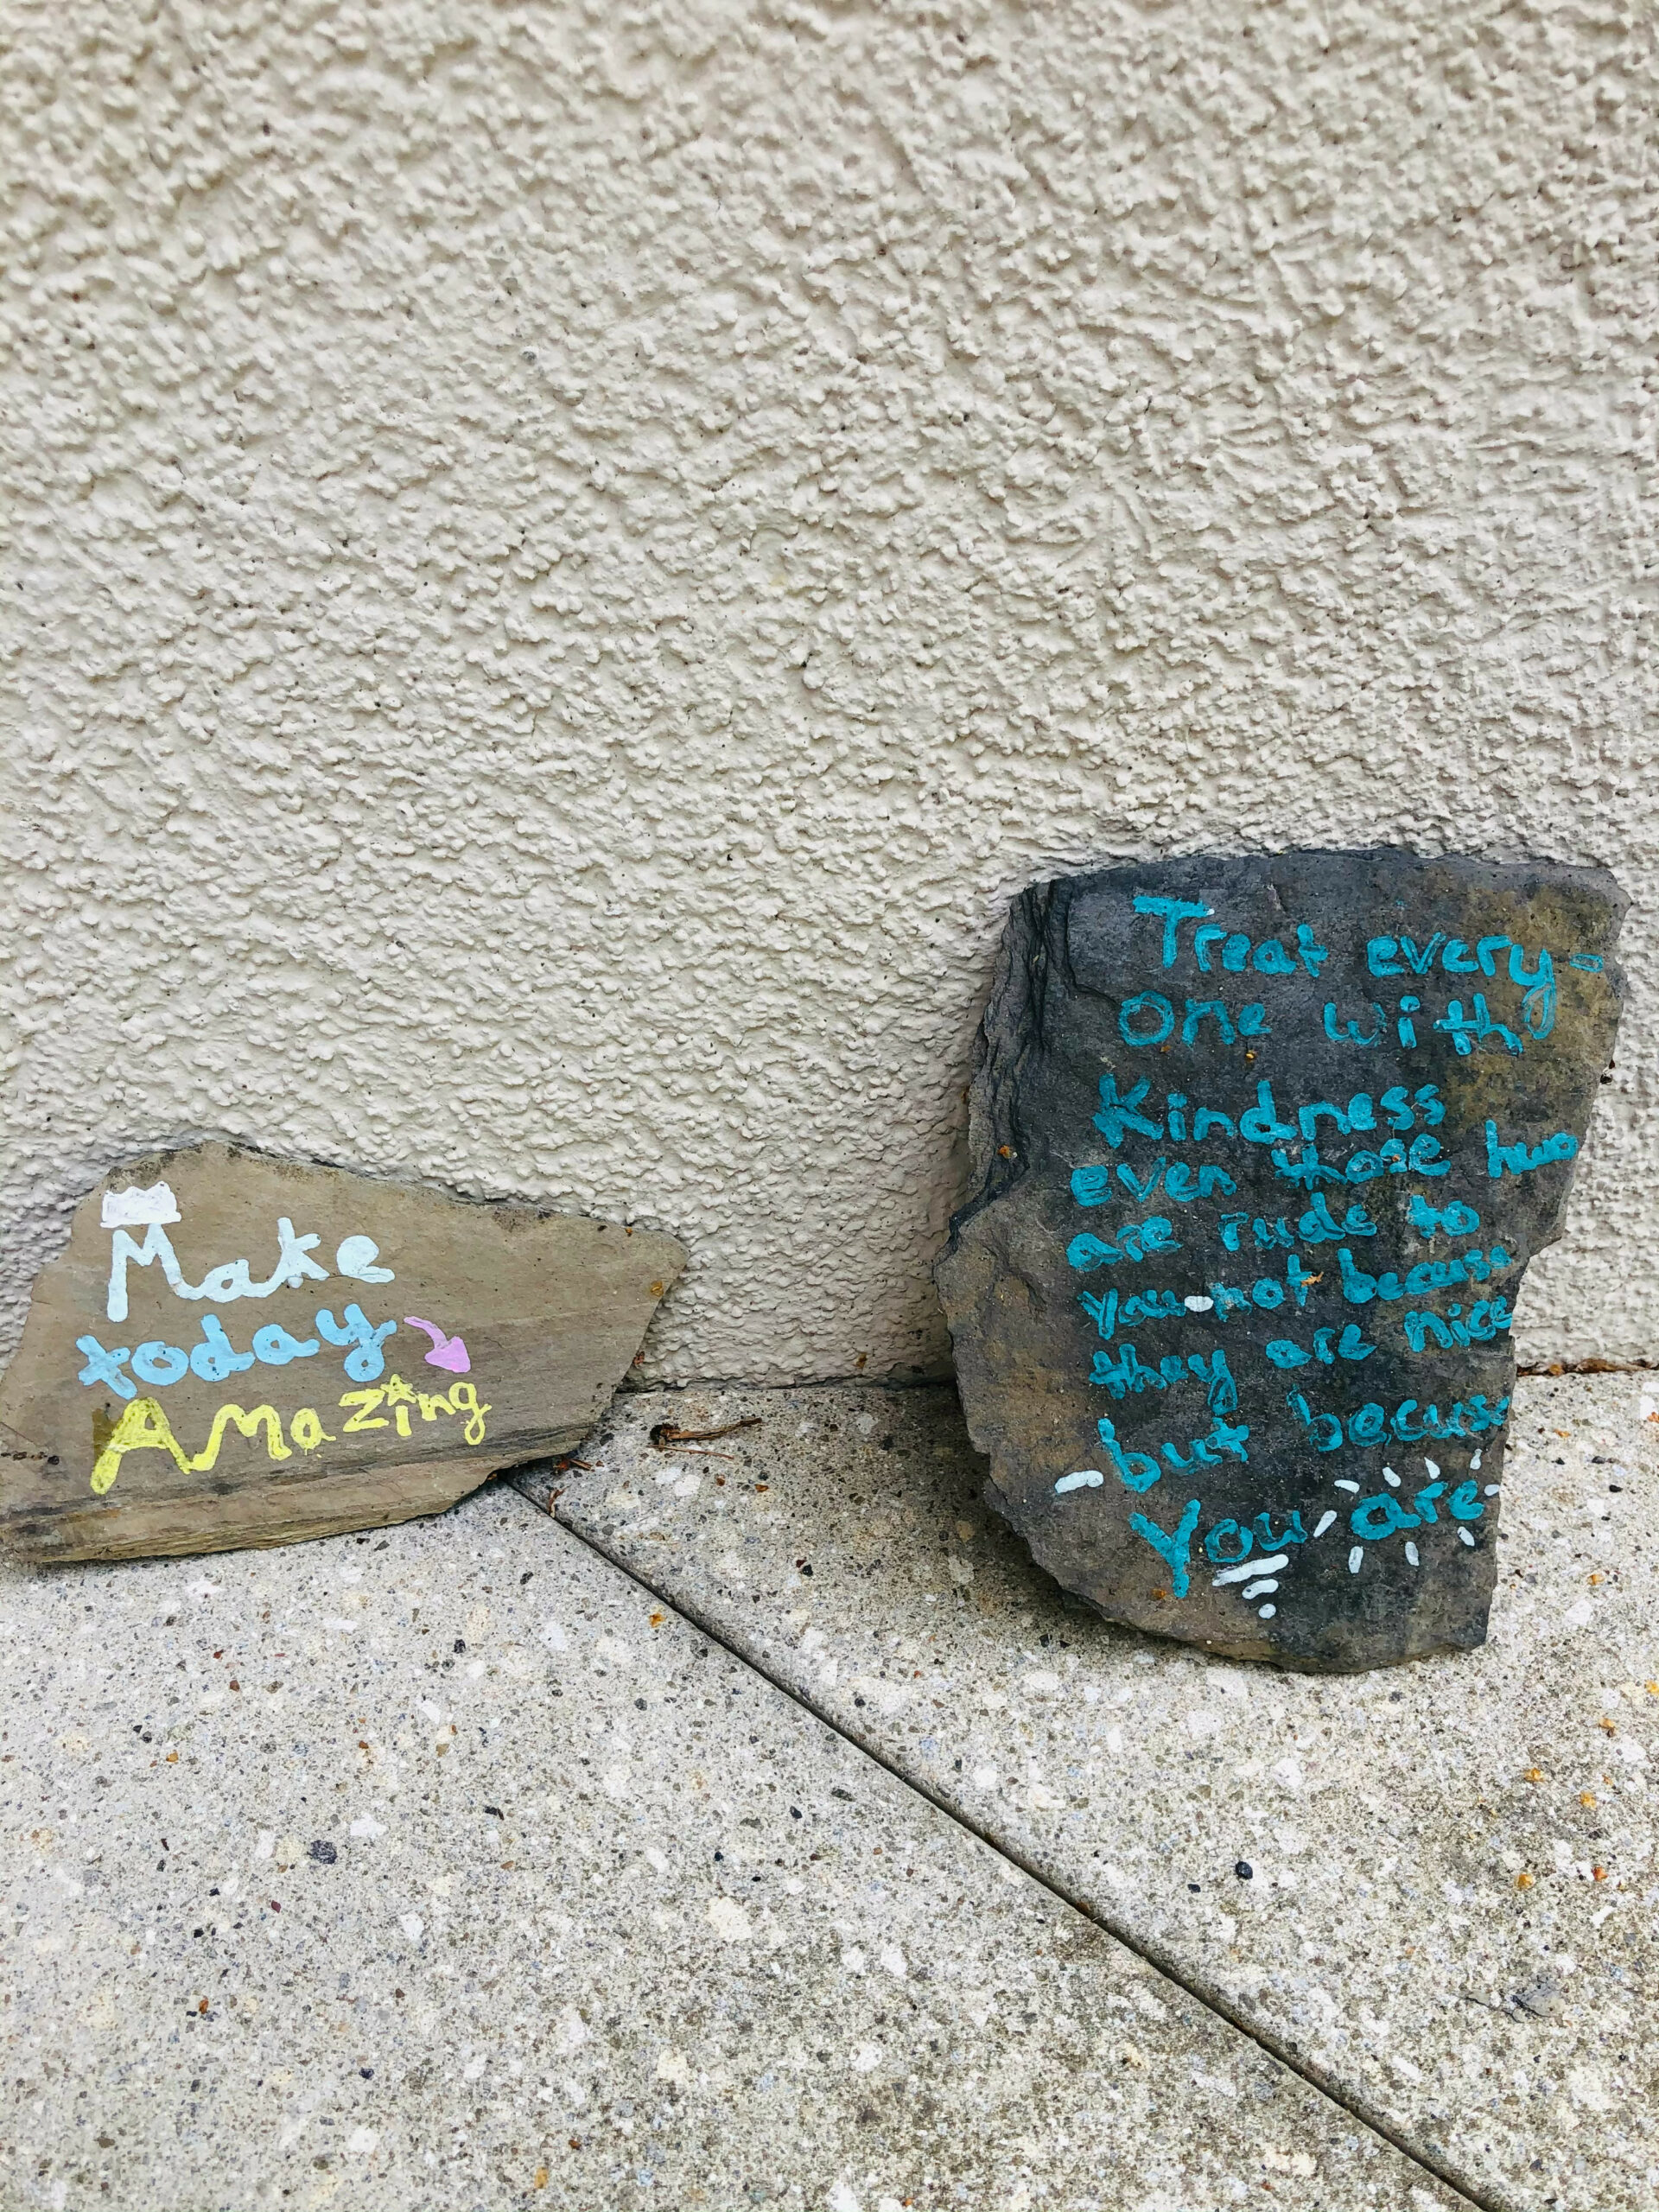 Make
today
Amazing
Treat every-
One with
Kindness
even those hwo
are rude to
you not becuse
they are nice
but becuse
You are